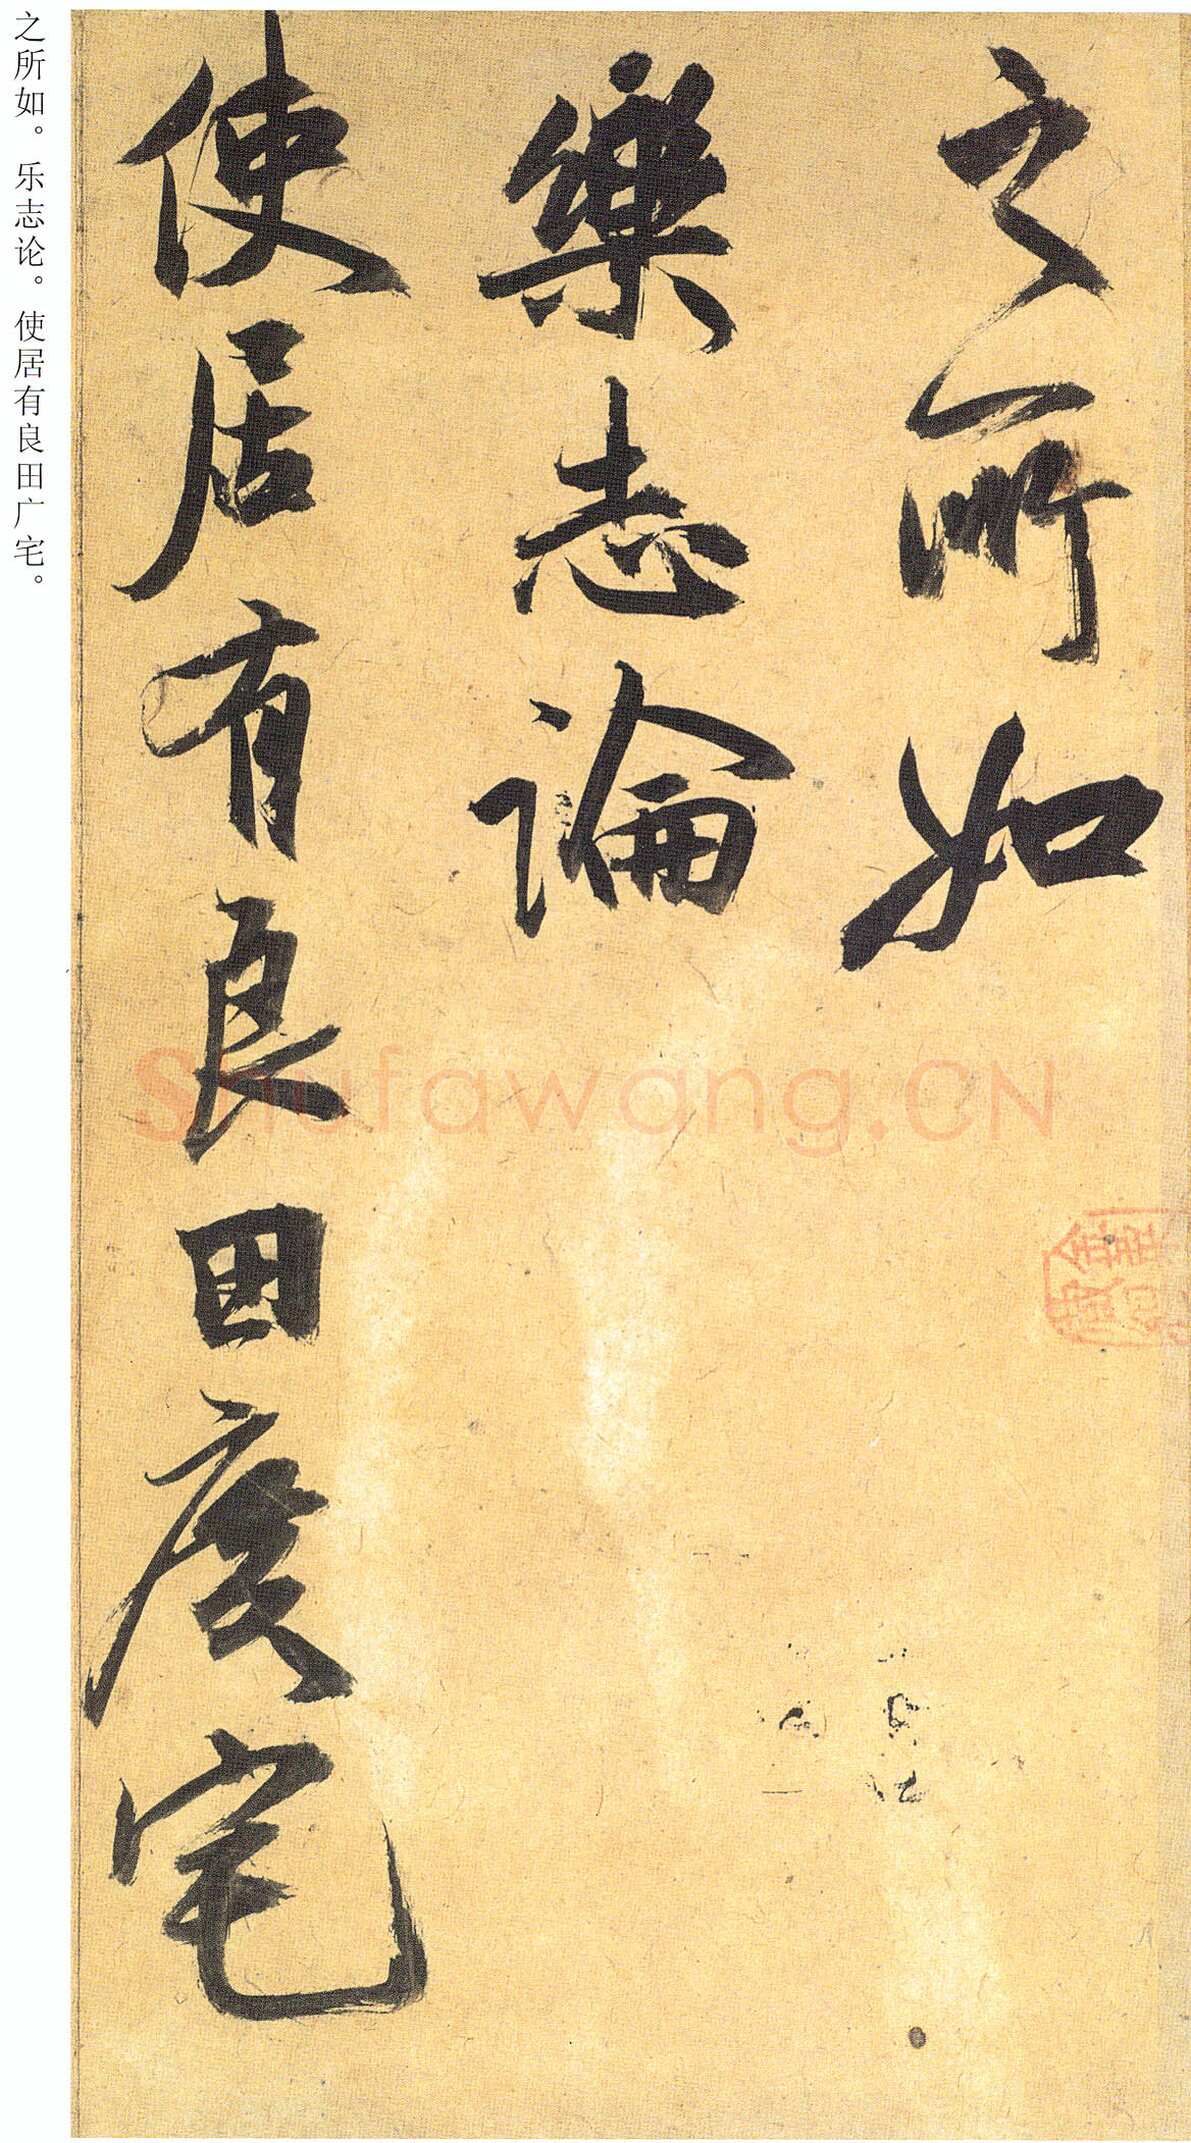 之所如
樂志論
使居有良田廣宅
之所如。乐志论。使居有良田广宅。
Shufawang.CN